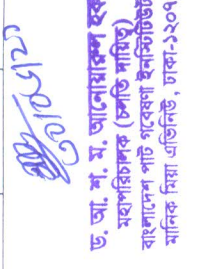 ড. আ. শ. ম. আনোয়ারুল হক
মহাপরিচালক (চলতি দায়িত্ব)
বাংলাদেশ পাট গবেষণা ইনস্টিটিউট
মানিক মিয়া এভিনিউ, ঢাকা-১২০৭